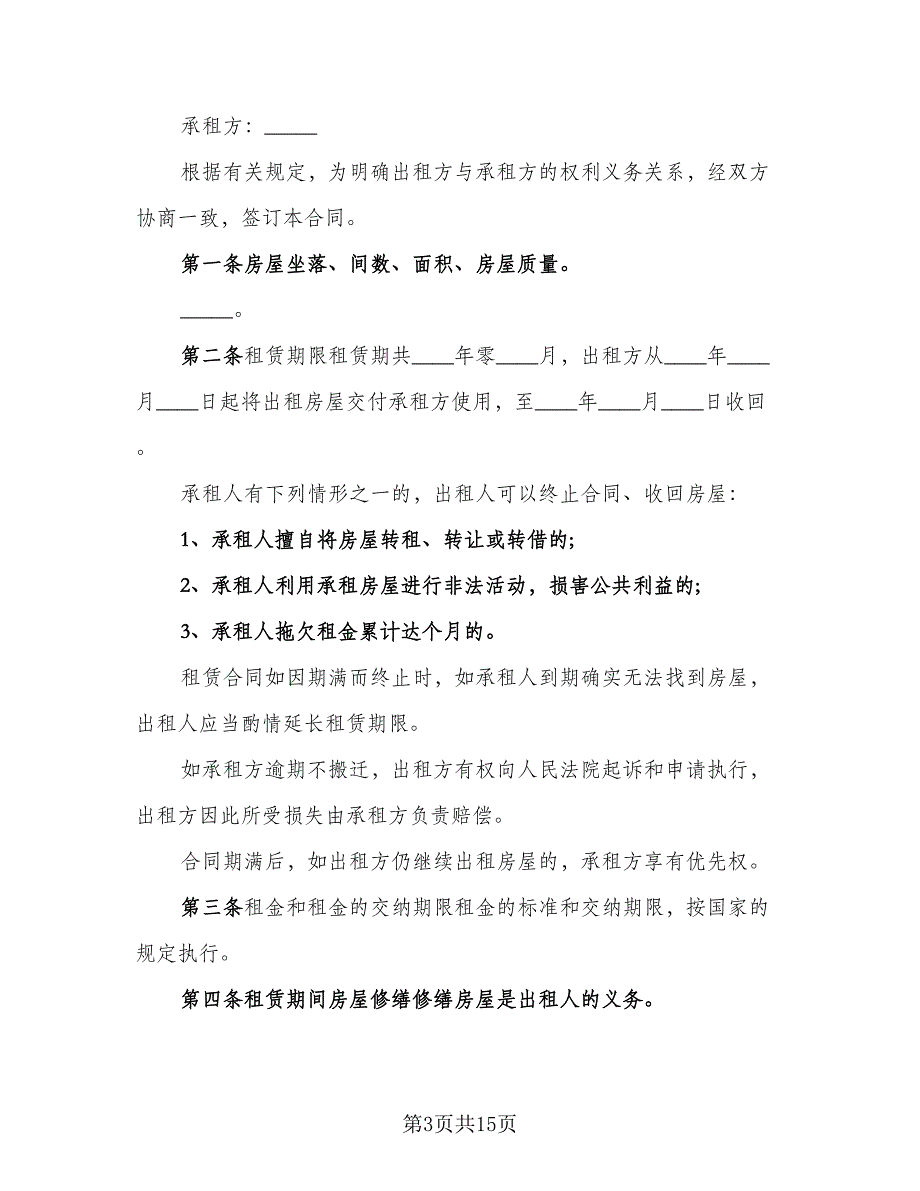 承租方：_____
根据有关规定，为明确出租方与承租方的权利义务关系，经双方
协商一致，签订本合同。
第一条房屋坐落、间数、面积、房屋质量。
_____。
第二条租赁期限租赁期共____年零____月，出租方从____年____
月____日起将出租房屋交付承租方使用，至____年____月____日收回
。
承租人有下列情形之一的，出租人可以终止合同、收回房屋：
1、承租人擅自将房屋转租、转让或转借的;
2、承租人利用承租房屋进行非法活动，损害公共利益的;
3、承租人拖欠租金累计达个月的。
租赁合同如因期满而终止时，如承租人到期确实无法找到房屋，
出租人应当酌情延长租赁期限。
如承租方逾期不搬迁，出租方有权向人民法院起诉和申请执行，
出租方因此所受损失由承租方负责赔偿。
合同期满后，如出租方仍继续出租房屋的，承租方享有优先权。
第三条租金和租金的交纳期限租金的标准和交纳期限，按国家的
规定执行。
第四条租赁期间房屋修缮修缮房屋是出租人的义务。
第3页共15页